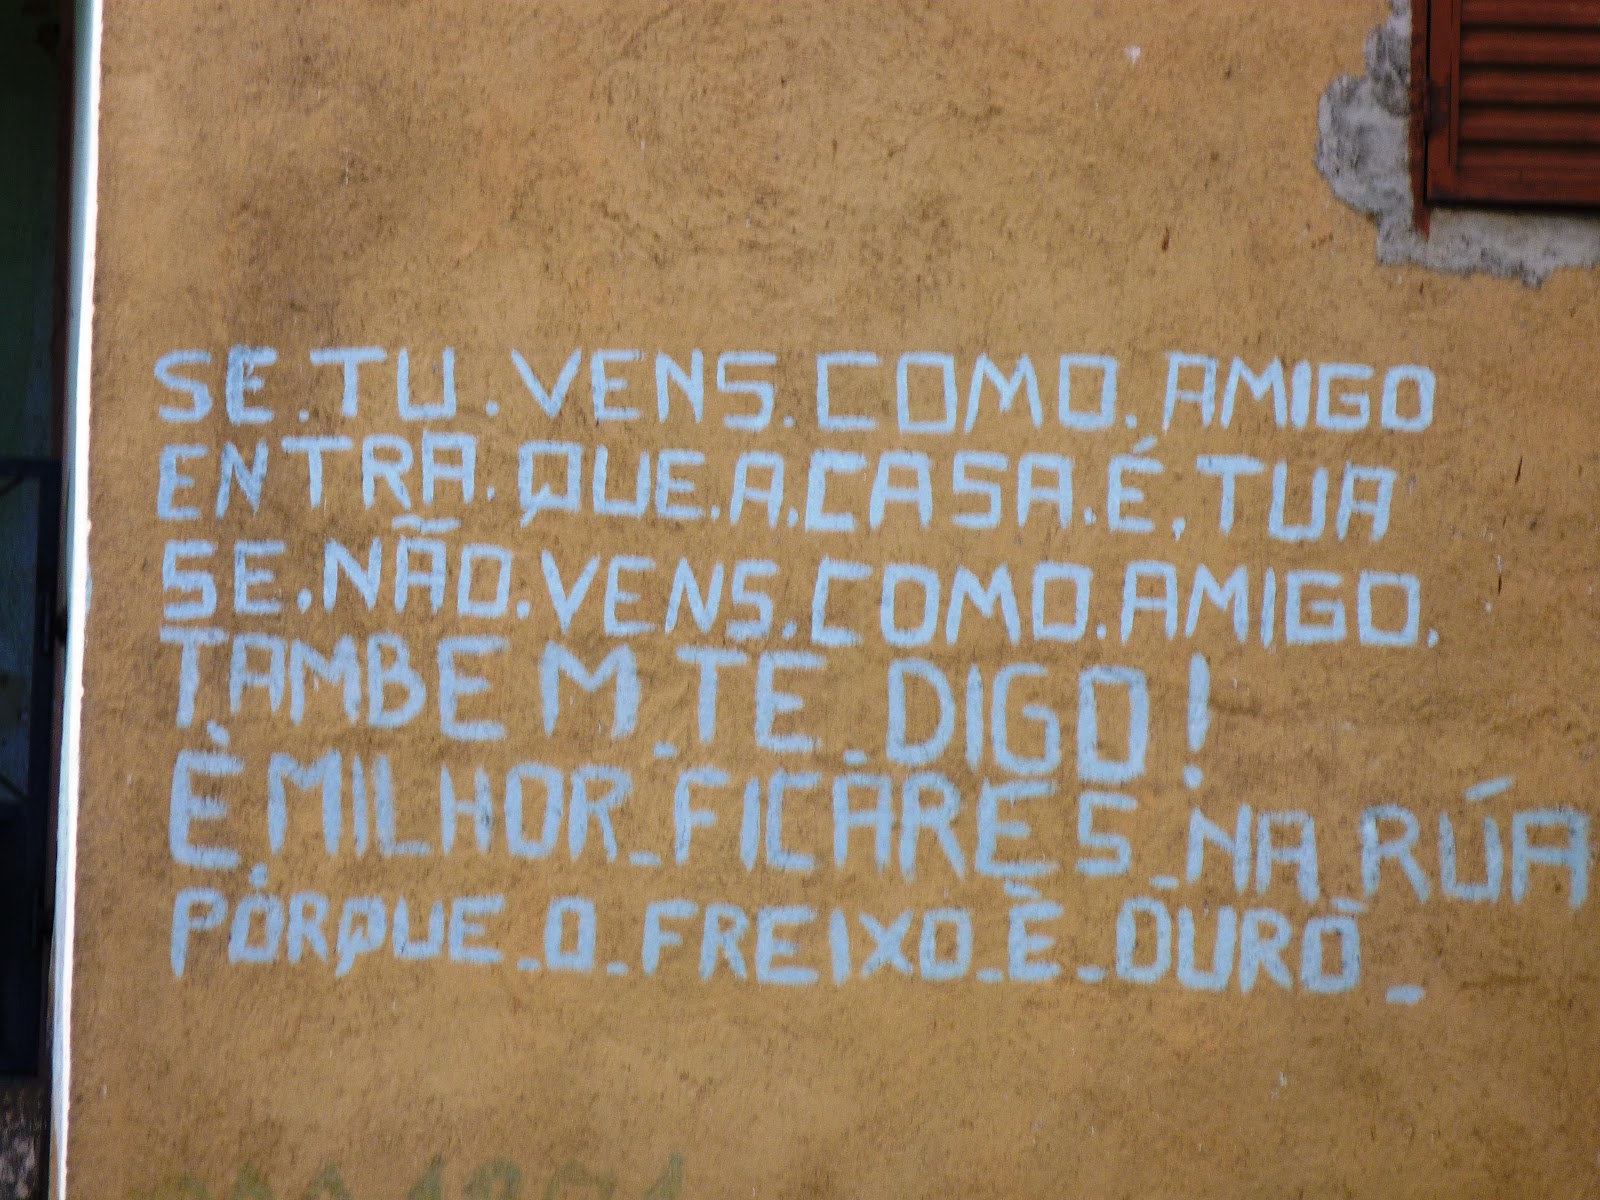 SE.TU.VENS.COMO.AMIGO
ENTRA.QUE.A.CASA.É.TUA
SE.NÃO.VENS.COMO.AMIGO.
TAMBEM_TE_DIGO!
È.MILHOR_FICARES_NA_RÚA
PORQUE_O_FREIXO_È_OURO_